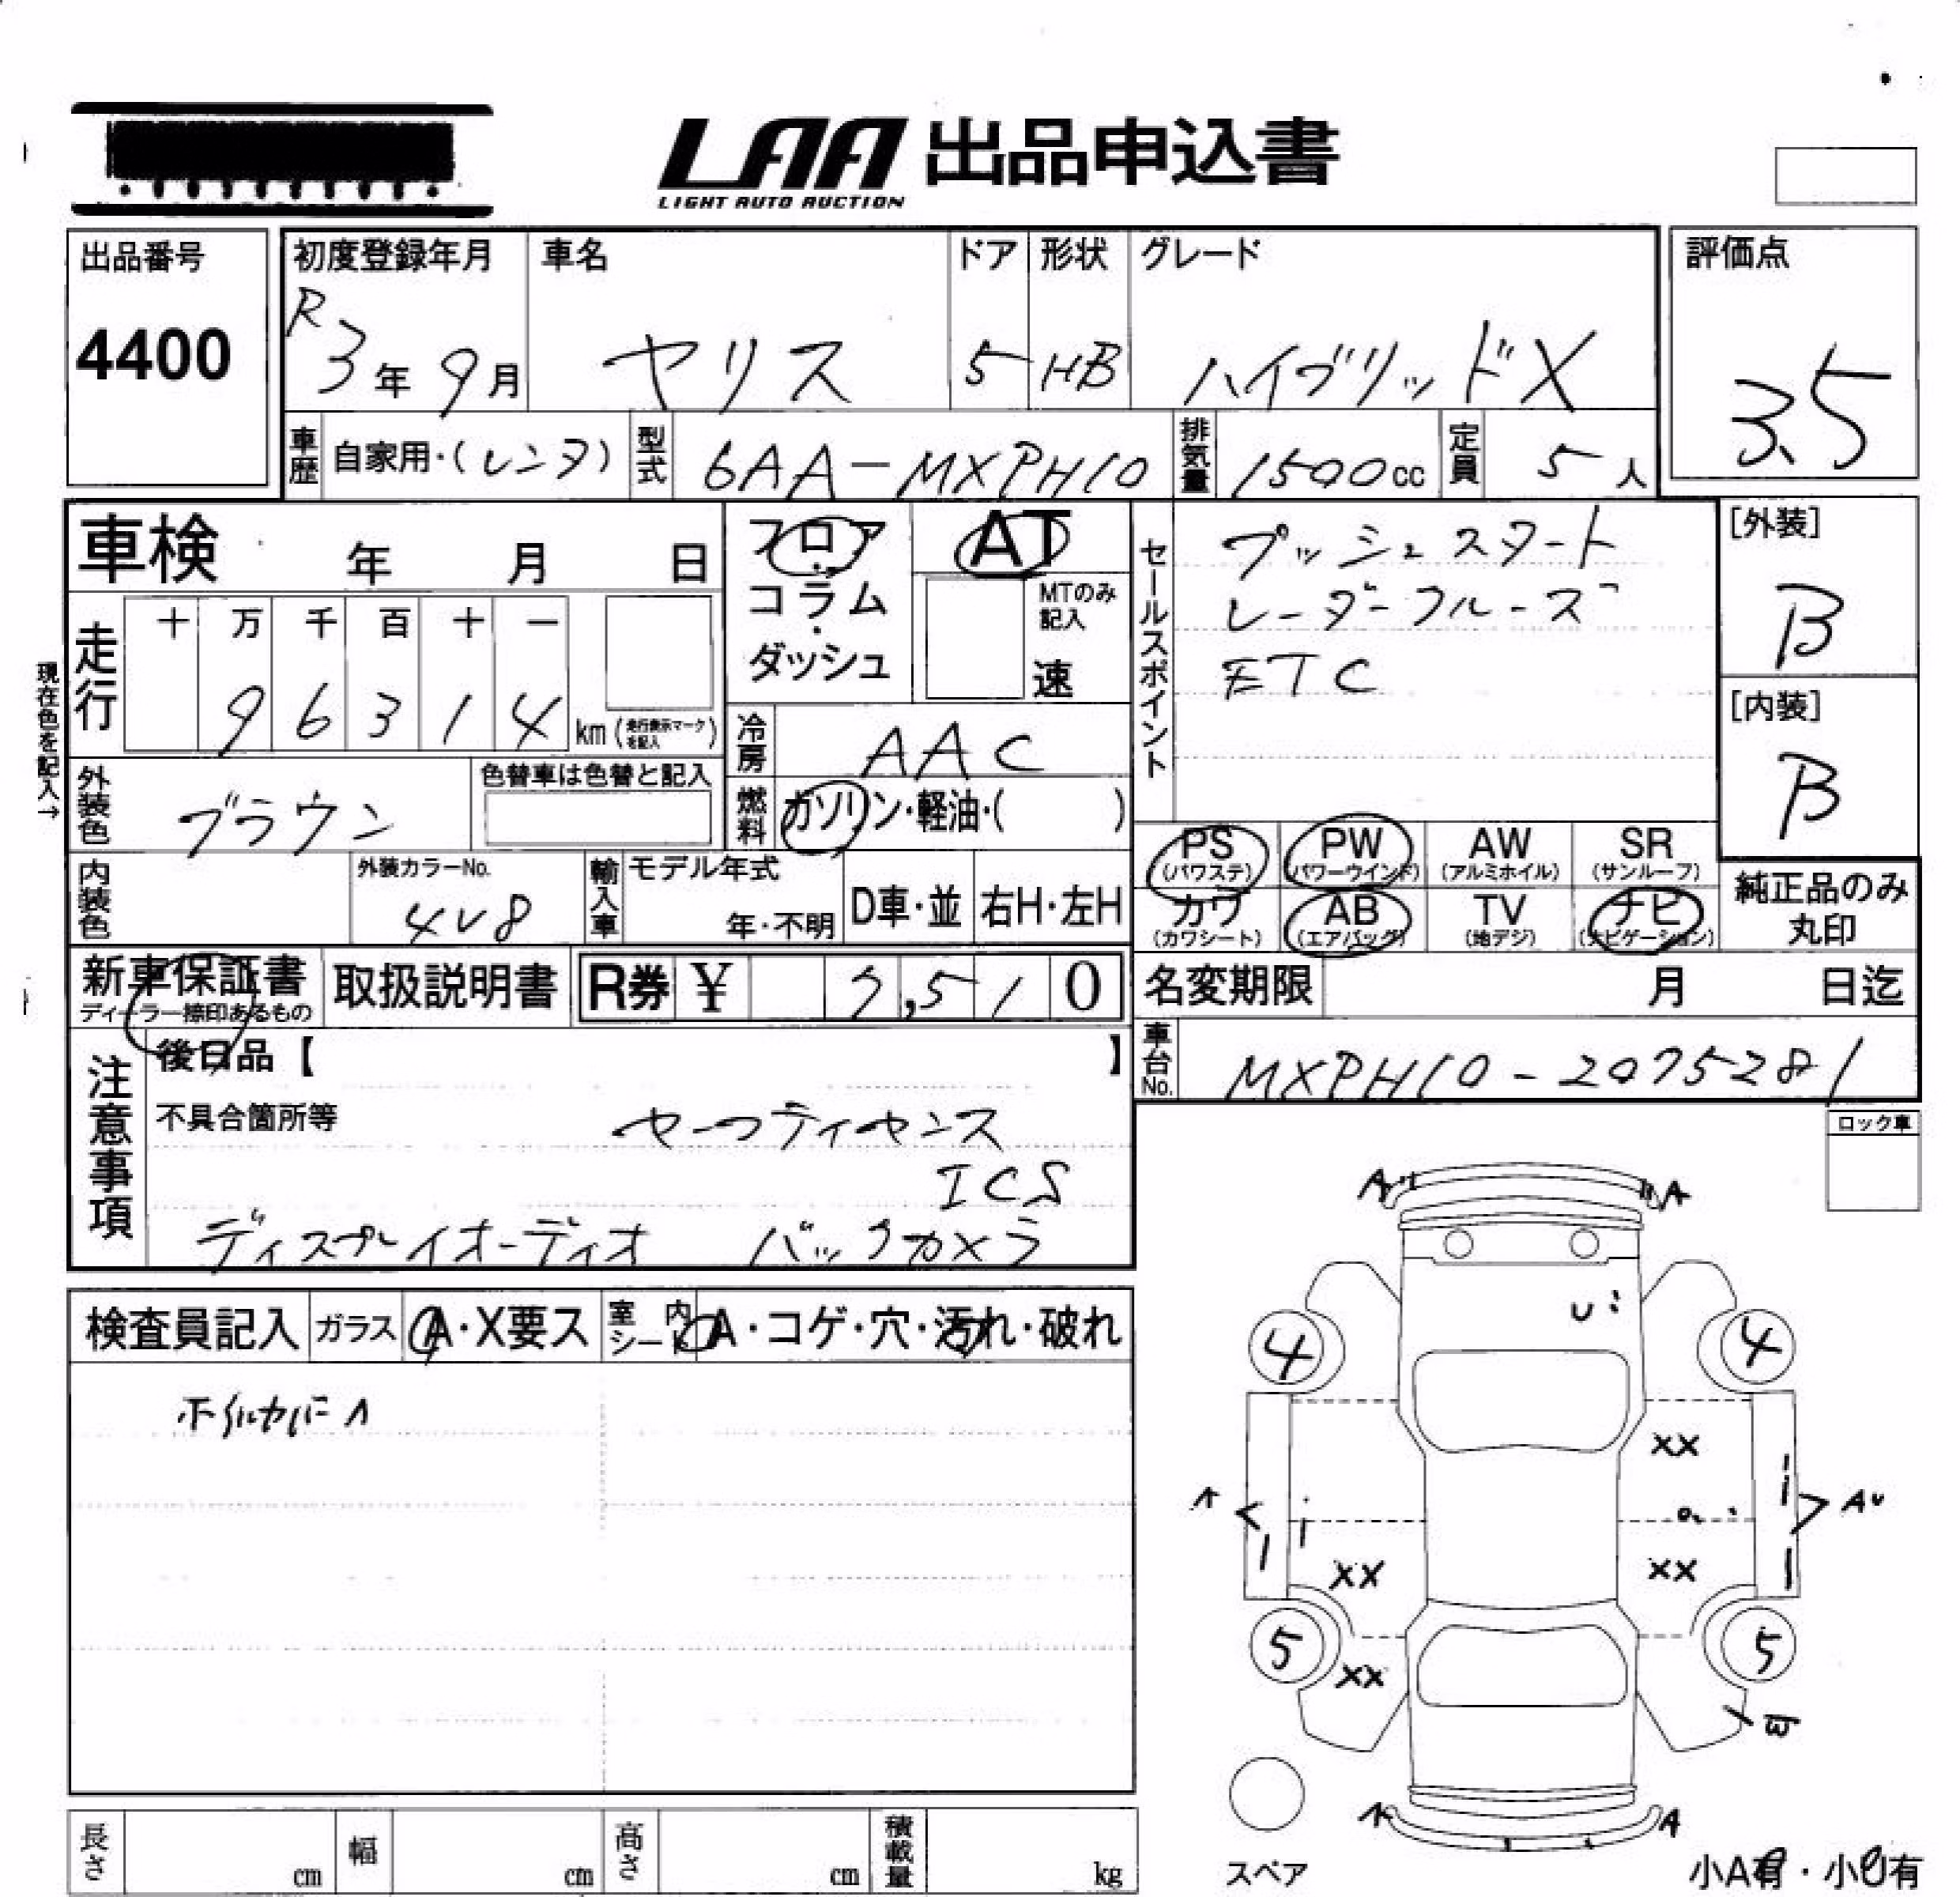 LAA 出品申込書
LIGHT AUTO AUCTION
出品番号
4400
初度登録年月
R3年9月
車名
ヤリス
ドア
5
形状
HB
グレード
ハイブリッドX
評価点
3.5
車歴 自家用・(レンタ)
型式 6AA-MXPH10
排気量 1500cc
定員 5人
車検 年 月 日
フロア・コラム・ダッシュ
AT
MTのみ記入
速
セールスポイント
プッシュスタート
レーダークルーズ
ETC
[外装]
B
[内装]
B
現在色を記入→
走行
十 万 千 百 十 一
9 6 3 1 4 km (走行表示マークを記入)
冷房 AAC
燃料 ガソリン・軽油・( )
外装色 ブラウン
色替車は色替と記入
内装色
外装カラーNo.
4V8
輸入車
モデル年式
年・不明
D車・並
右H・左H
PS (パワステ)
PW (パワーウインド)
AW (アルミホイル)
SR (サンルーフ)
カワ (カワシート)
AB (エアバッグ)
TV (地デジ)
ナビ (ナビゲーション)
純正品のみ丸印
新車保証書
ディーラー捺印あるもの
取扱説明書
R券 ¥ 7,510
名変期限 月 日迄
車台No. MXPH10-2075281
注意事項
後日品【 】
不具合箇所等
セーフティセンス
ICS
ディスプレイオーディオ バックカメラ
ロック車
検査員記入
ガラス A・X要ス
室内シート A・コゲ・穴・汚れ・破れ
ホイルカバーA
A A
U
4 4
XX
A AU
XX XX
5 5
XX
A A
スペア
小A有・小U有
長さ cm
幅 cm
高さ cm
積載量 kg